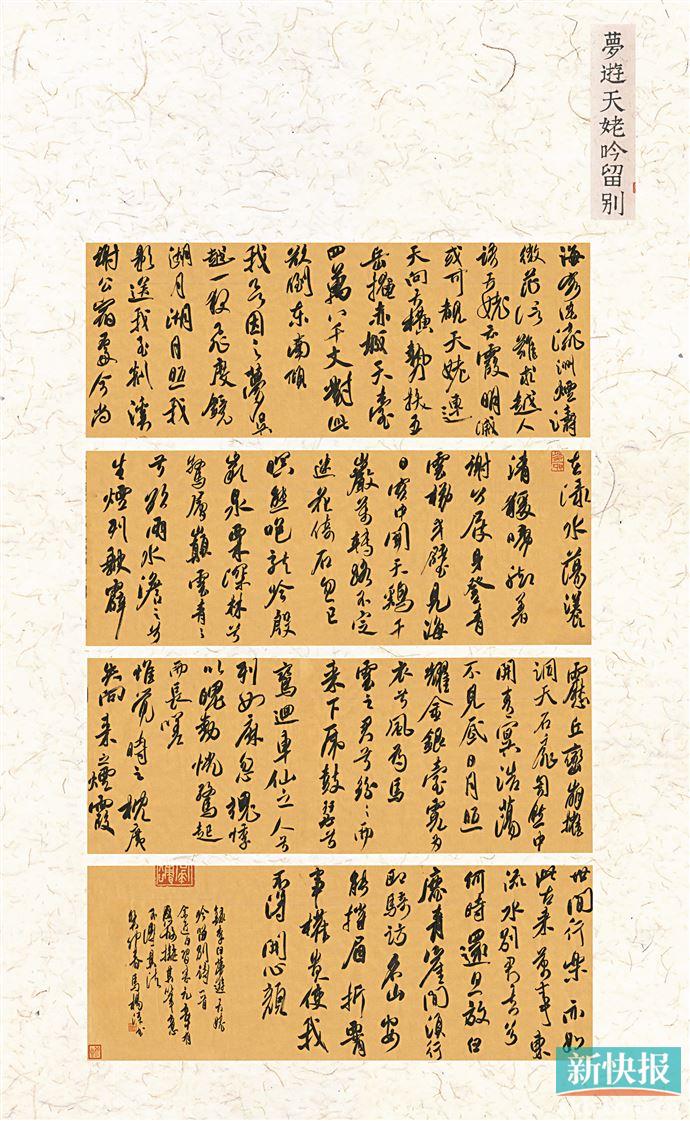 夢遊天姥吟留别
海客谈瀛洲煙濤
微茫信難求越人
語天姥云霞明滅
或可覩天姥連
天向天橫勢拔五
岳掩赤城天臺
四萬八千丈對此
欲倒東南傾
我欲因之夢吳
越一夜飛度鏡
湖月湖月照我
影送我至剡溪
謝公宿處今尚
在淥水蕩漾
清猨啼腳著
謝公屐身登青
雲梯半壁見海
日空中聞天鷄千
巖萬轉路不定
迷花倚石忽已
暝熊咆龍吟殷
巖泉栗深林兮
驚層巔雲青々
兮欲雨水澹々兮
生煙列缺霹
靂丘巒崩摧
洞天石扉訇然中
開青冥浩蕩
不見底日月照
耀金銀臺霓为
衣兮風为馬
雲之君兮紛々而
來下虎鼓瑟兮
鸞迴車仙之人兮
列如麻忽魂悸
以魄動恍驚起
而長嗟
惟覺時之枕席
失向来之煙霞
世間行樂亦如
此古来萬事東
流水別君去兮
何時還且放白
鹿青崖間須行
即騎訪名山安
能摧眉折腰
事權貴使我
不得開心顏
錄李白夢遊天姥
吟留別詩一首
癸卯春馬楊
新快报